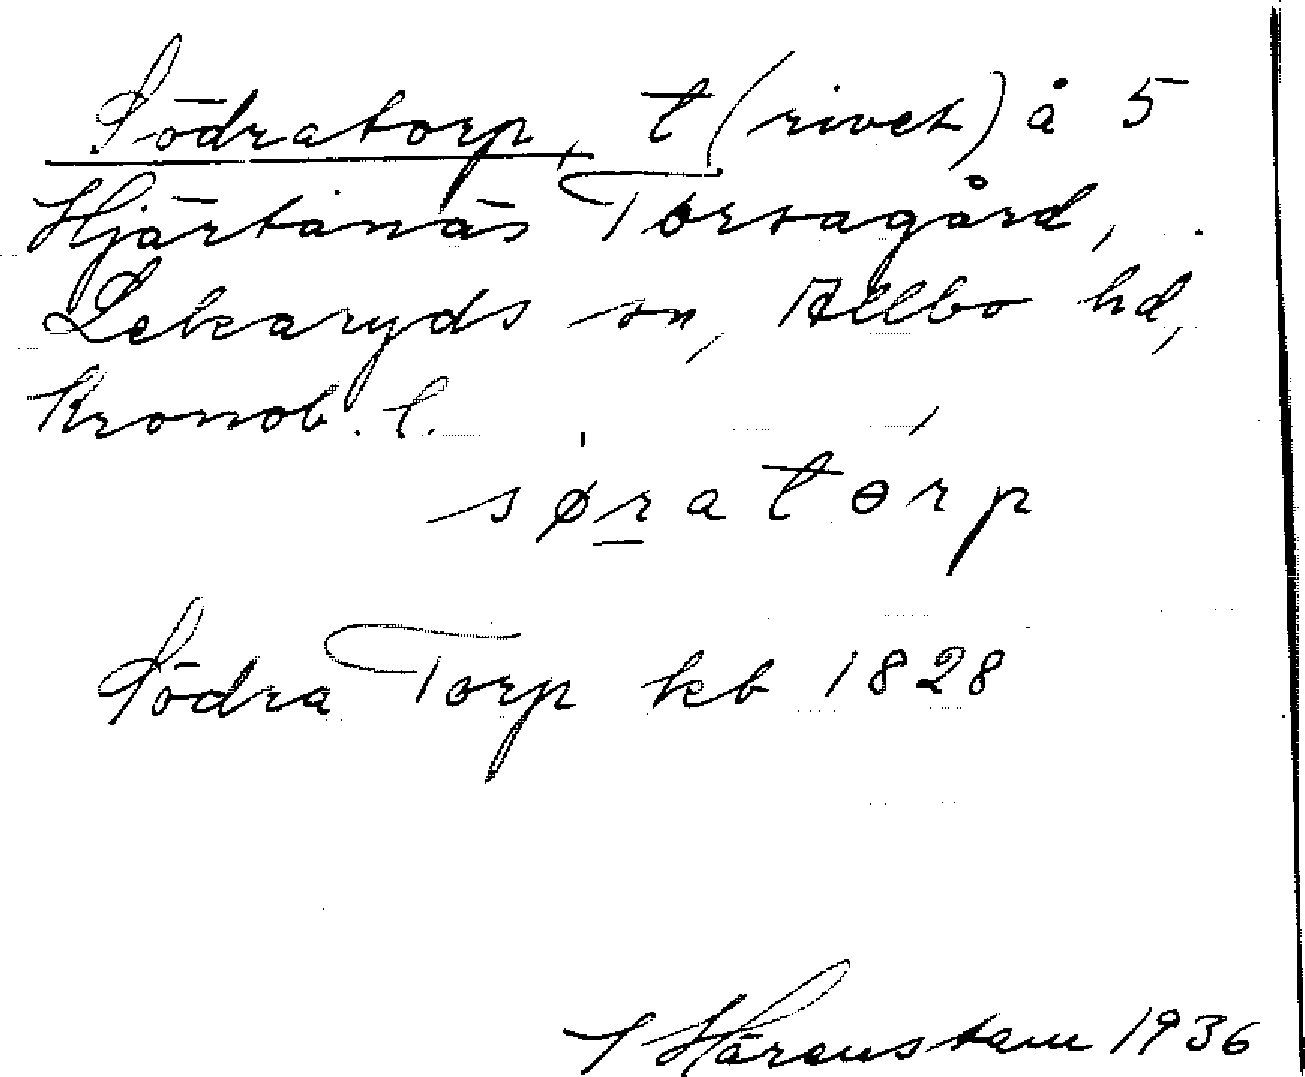 Södratorp, t (rivet) å 5
Hjärtanäs Torsagård,
Lekaryds sn, Allbo hd,
Kronob. l.
søratɵrp
Södra Torp kb 1828
Härenstam 1936